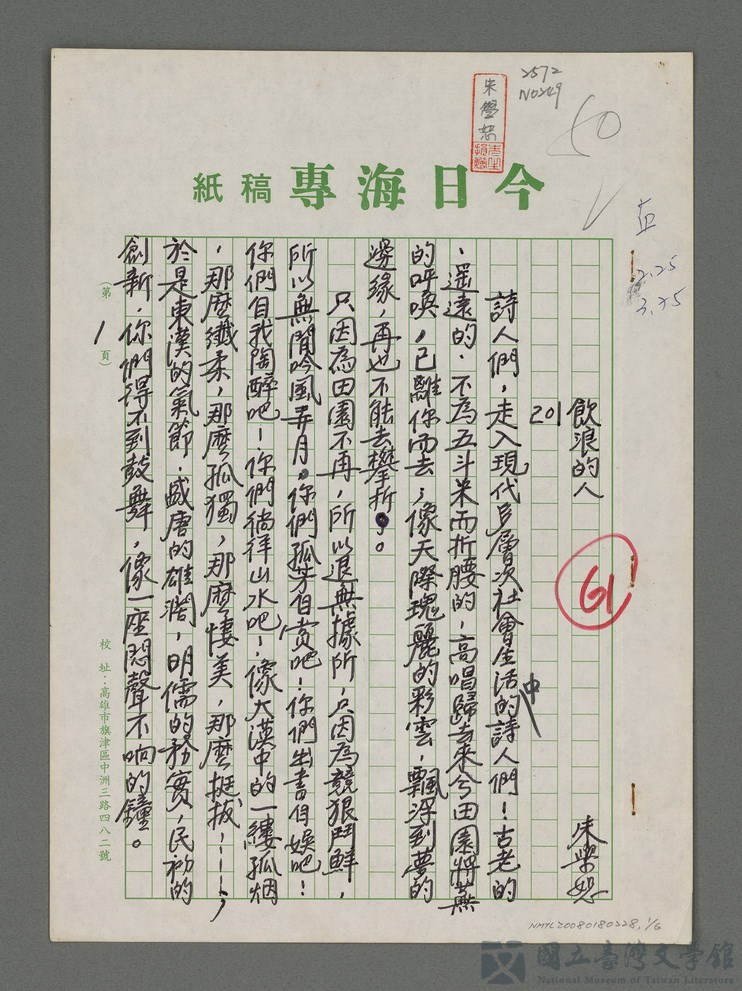 2572
No249
朱學恕
50
今日海專稿紙
2.25
3.25
飲浪的人
朱學恕
201
61
詩人們，走入現代多層次社會生活中的詩人們！古老的
、遥遠的、不為五斗米而折腰的，高唱歸去來兮田園將蕪
的呼喚，已離你而去，像天際瑰麗的彩雲，飄浮到夢的
邊緣，再也不能去攀折。
只因為田園不再，所以退無據所，只因為競狠鬥鮮，
所以無閒吟風弄月。你們孤芳自賞吧！你們出書自娛吧！
你們自我陶醉吧！你們徜徉山水吧！像大漠中的一縷孤烟
，那麼纖柔，那麼孤獨，那麼悽美，那麼挺拔，……，
於是東漢的氣節，盛唐的雄渾，明儒的務實，民初的
創新，你們得不到鼓舞，像一座悶聲不响的鐘。
（第1頁）
校址：高雄市旗津區中洲三路四八二號
NMTL20080180228, 1/6
國立臺灣文學館
National Museum of Taiwan Literature